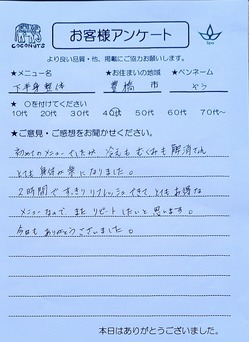 COCONUTS
お客様アンケート
Spa
より良い品質・他、掲載にご協力お願いします。
★メニュー名 ★お住まいの地域 ★ペンネーム
下半身整体 豊橋 市
★ ○を付けてください
10代 20代 30代 40代 50代 60代 70代～
★ご意見・ご感想をお聞かせください。
初めてのメニューでしたが 冷えも むくみも 解消され
とても 身体が 楽になりました。
2時間で すっきり リフレッシュできて、とても お得な
メニューなので、また リピートしたいと思います。
今日も ありがとうございました。
本日はありがとうございました。